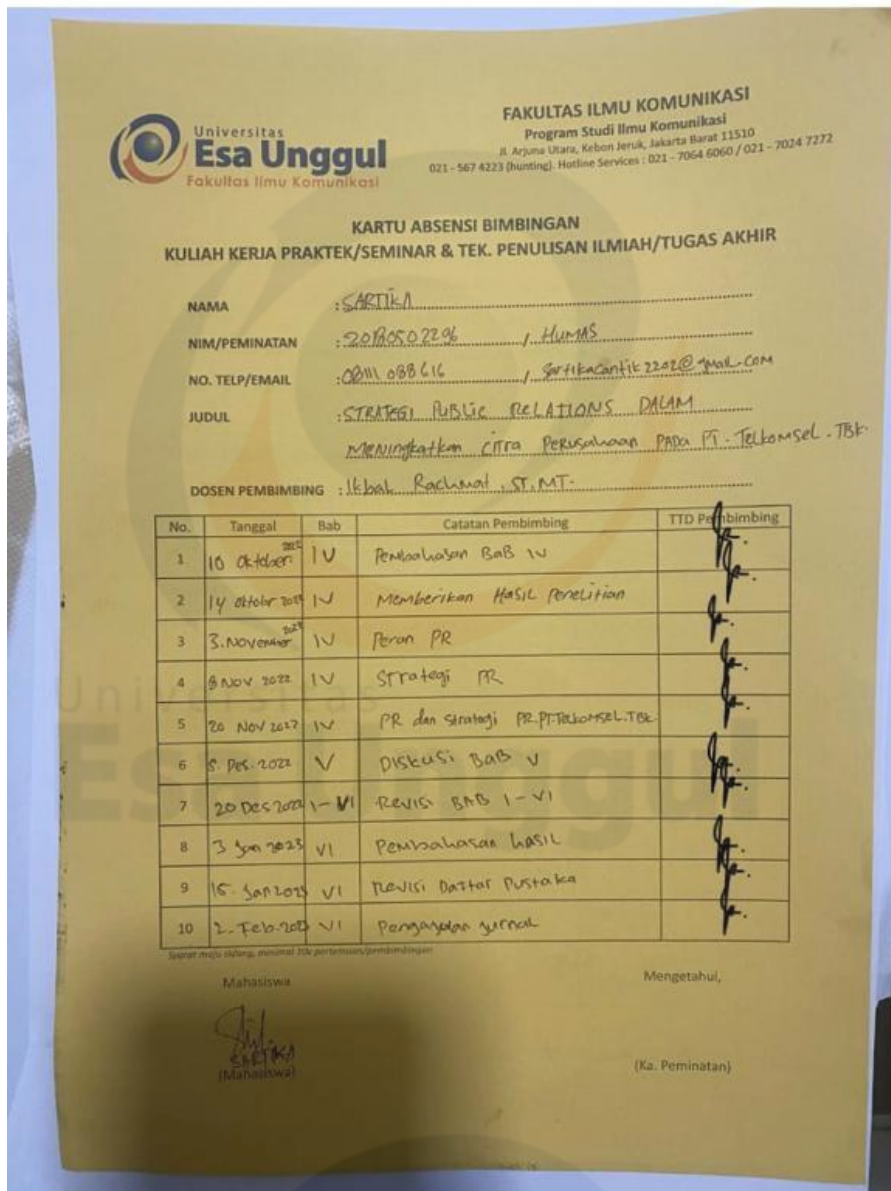 Universitas
Esa Unggul
Fakultas Ilmu Komunikasi
FAKULTAS ILMU KOMUNIKASI
Program Studi Ilmu Komunikasi
Jl. Arjuna Utara, Kebon Jeruk, Jakarta Barat 11510
021 - 567 4223 (hunting). Hotline Services : 021 - 7064 6060 / 021 - 7024 7272
KARTU ABSENSI BIMBINGAN
KULIAH KERJA PRAKTEK/SEMINAR & TEK. PENULISAN ILMIAH/TUGAS AKHIR
NAMA : SARTIKA
NIM/PEMINATAN : 20180502296 / HUMAS
NO. TELP/EMAIL : 08111 088 616 / sartikacantik2202@gmail.com
JUDUL : STRATEGI PUBLIC RELATIONS DALAM
Meningkatkan Citra Perusahaan PADA PT. Telkomsel. TBK.
DOSEN PEMBIMBING : Ikbal Rachmat, ST. MT.
No. Tanggal Bab Catatan Pembimbing TTD Pembimbing
1 10 Oktober 2022 IV Pembahasan BAB IV
2 14 Oktober 2022 IV Memberikan Hasil Penelitian
3 3. November 2022 IV Peran PR
4 8 Nov 2022 IV Strategi PR
5 20 Nov 2022 IV PR dan strategi PR.PT.Telkomsel.TBK.
6 5. Des. 2022 V Diskusi BAB V
7 20 Des 2022 I - VI Revisi BAB I - VI
8 3 Jan 2023 VI Pembahasan hasil
9 15. Jan 2023 VI Revisi Daftar Pustaka
10 2. Feb. 2023 VI jurnal
Syarat maju sidang, minimal 10x pertemuan/pembimbingan
Mahasiswa Mengetahui,
SARTIKA
(Mahasiswa) (Ka. Peminatan)
Universitas
Esa Unggul